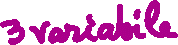 3 variabile